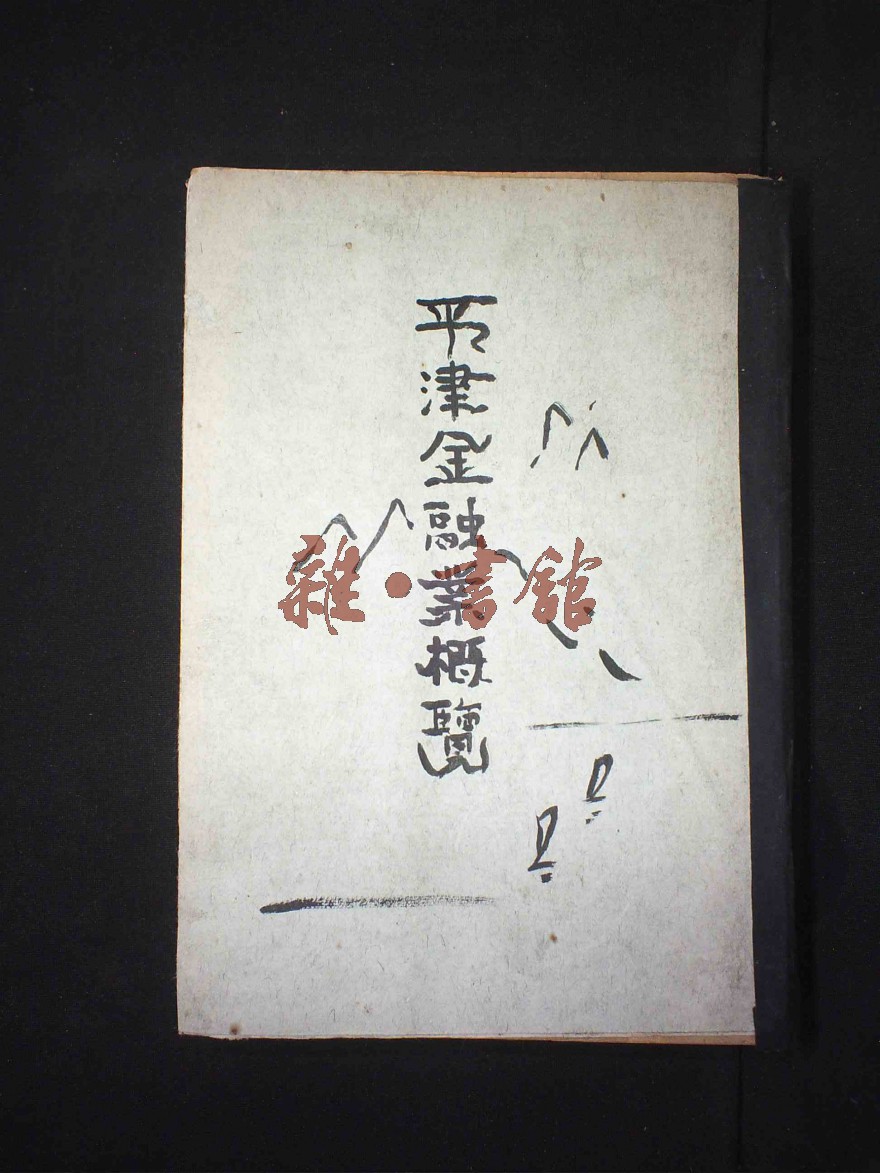 平津金融業概覽
雜·書館